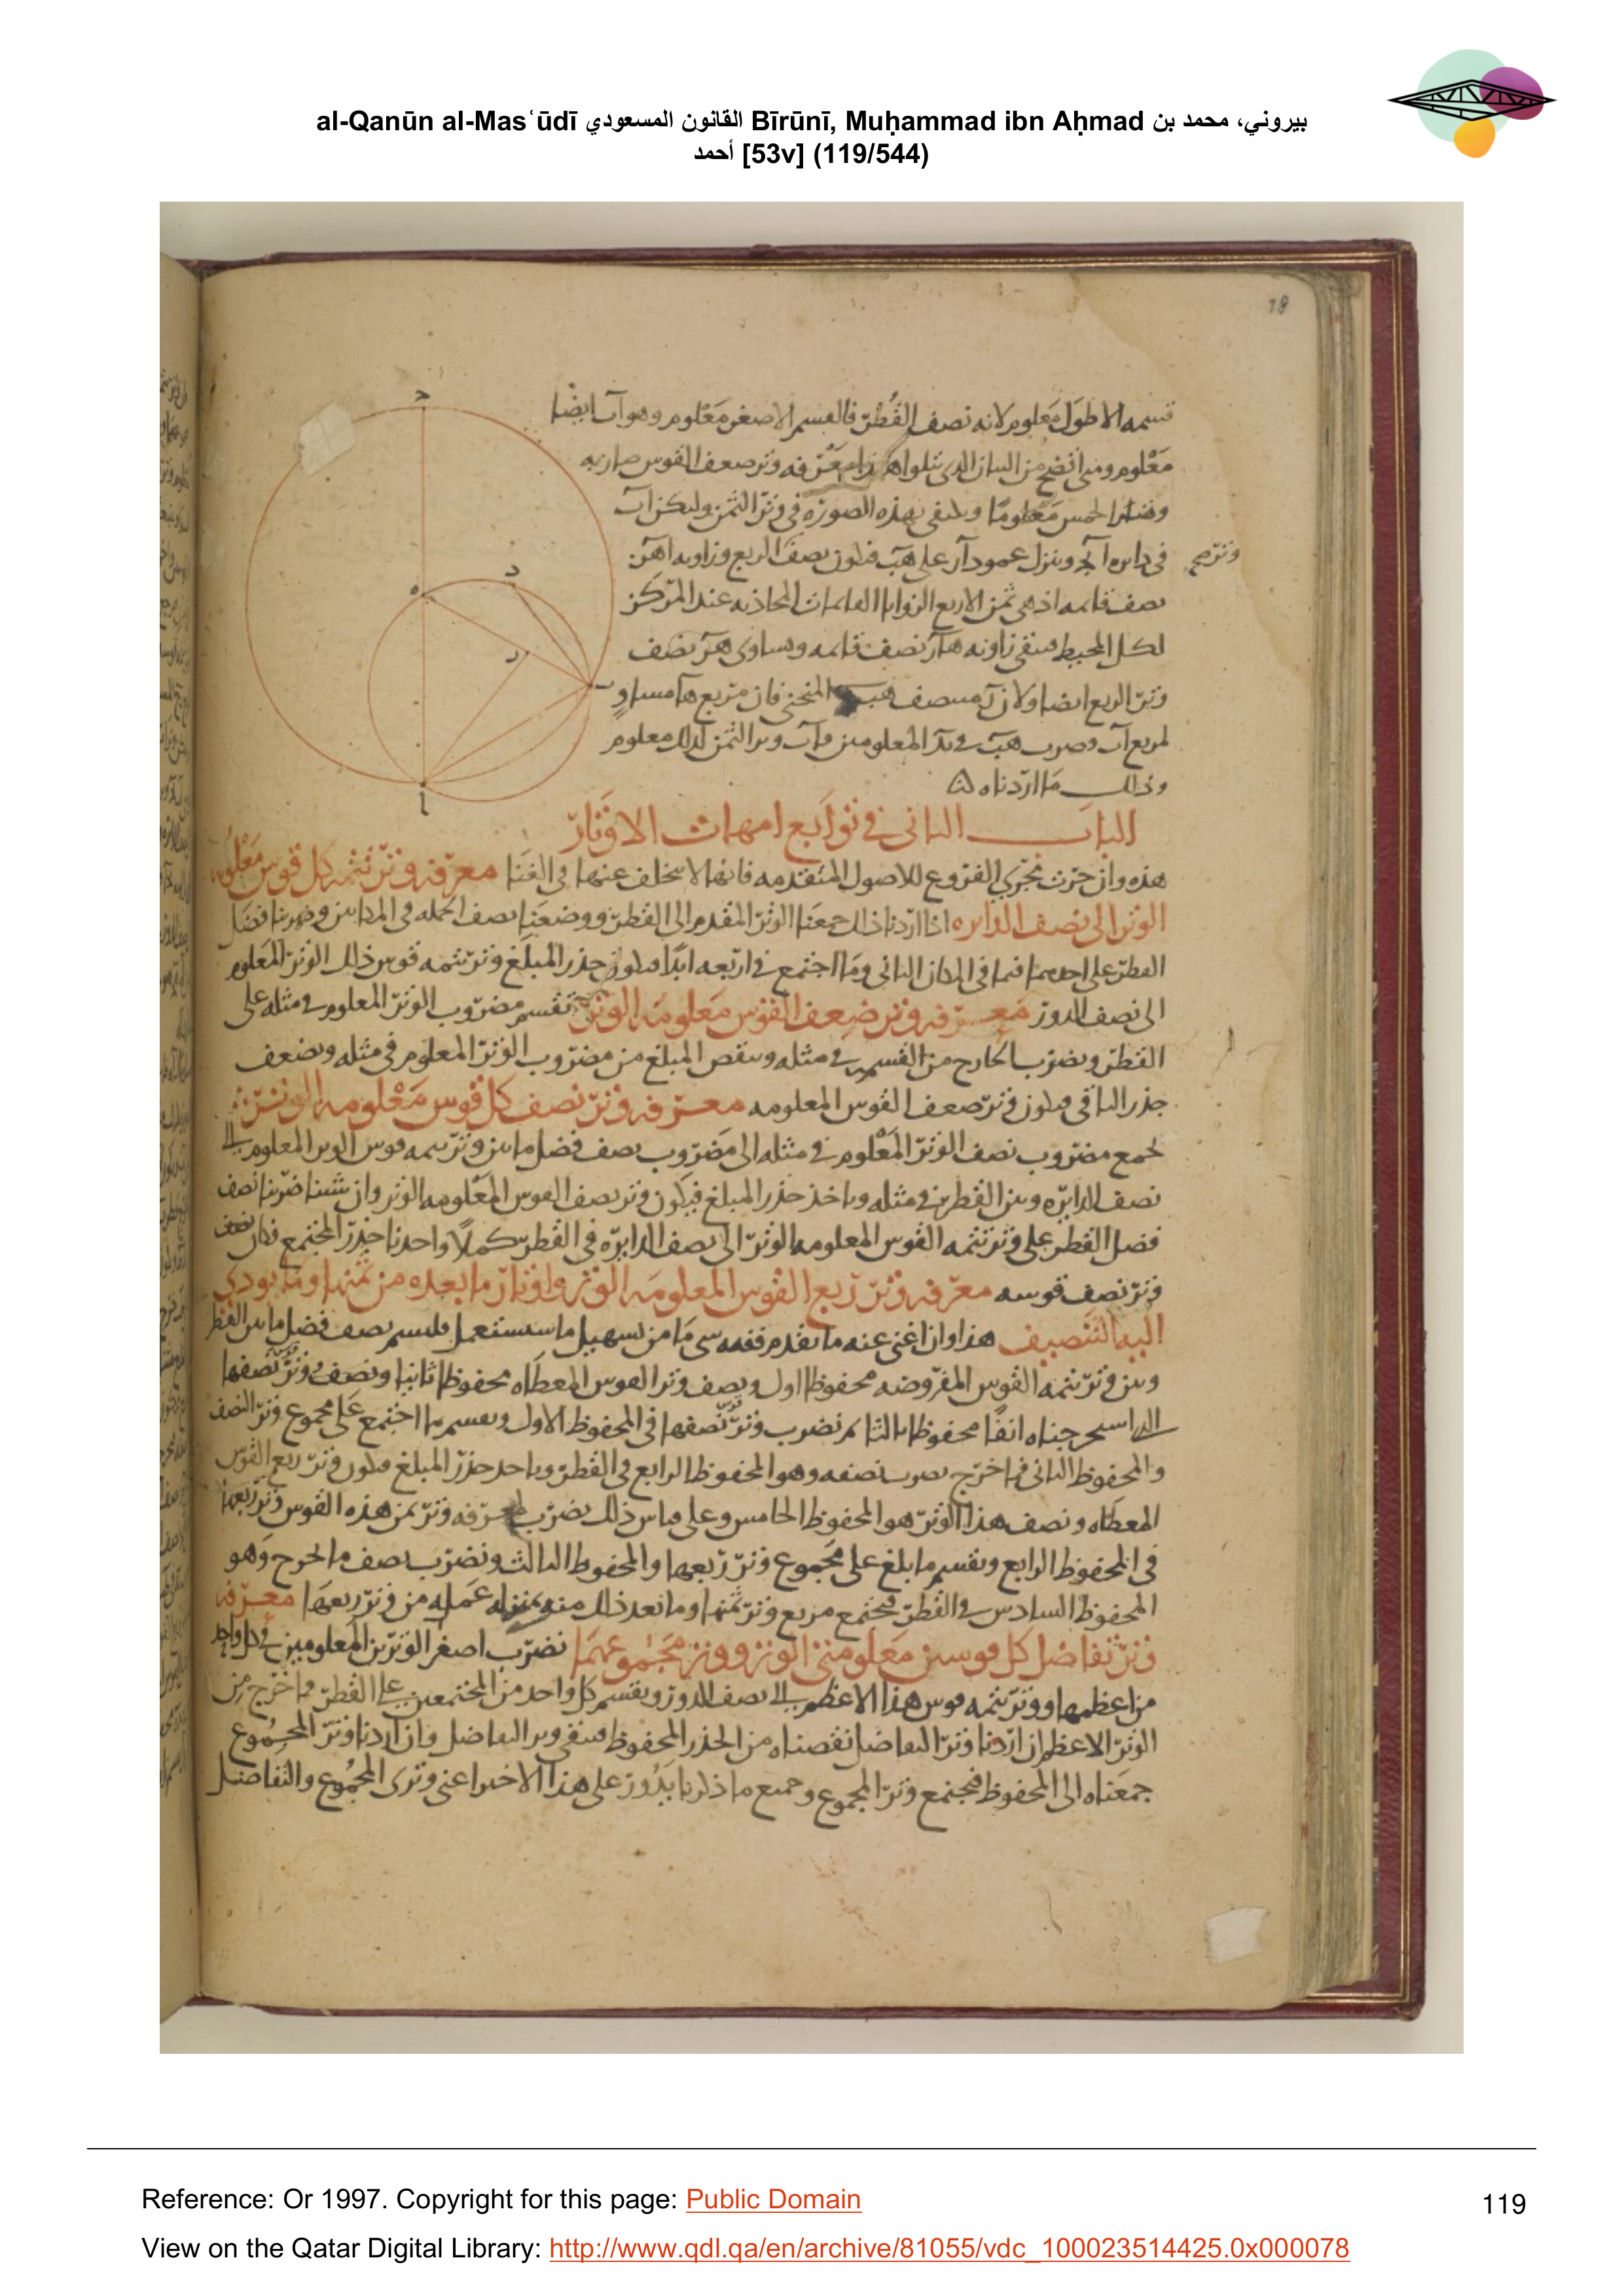 al-Qanūn al-Masʿūdī القانون المسعودي Bīrūnī, Muḥammad ibn Aḥmad بيروني، محمد بن
أحمد [53v] (119/544)
قسمه الاطول معلوم لانه نصف القطر فالقسم الاصغر معلوم وهو آب ايضا
معلوم ومتى اتضح من الباب الذى يتلوا هذا معرفه وتر ضعف القوس صار به
وتر الخمس معلوما ونكتفى بهذه الصورة فى وتر الثمن وليكن آب
فى دايره آبج وننزل عمود آر على هب فيكون نصف الربع وزاويه اهب
نصف قايمه اذ هى ثمن الاربع الزوايا القايمات المحاذيه عند المركز
لكل المحيط فتبقى زاويه هآر نصف قايمه وتساوى هر نصف
وتر الربع ايضا ولان آ منتصف هب المنحنى فان مربع هآ مساو
لمربع آب وضرب هب فى بر المعلومين فآب وتر الثمن لذلك معلوم
وذلك ما اردناه
الباب الثانى فى توابع امهات الاوتار
هذه وان جرت مجرى الفروع للاصول المتقدمه فانها لا تتخلف عنها فى الغنا معرفه وتر تتمه كل قوس معلومه
الوتر الى نصف الدايره اذا اردنا ذلك جمعنا الوتر المقدم الى القطر ووضعنا نصف الجمله فى المكانين وضربنا فضل
القطر على احدهما فيما فى المكان الثانى وما اجتمع فى اربعه ابدا فيكون جذر المبلغ وتر تتمه قوس ذلك الوتر المعلوم
الى نصف الدور معرفه وتر ضعف القوس معلومه الوتر نقسم مضروب الوتر المعلوم فى مثله على
القطر ونضرب الخارج من القسم فى مثله وننقص المبلغ من مضروب الوتر المعلوم فى مثله ونضعف
جذر الباقى فيكون وتر ضعف القوس المعلومه معرفه وتر نصف كل قوس معلومه الوتر
نجمع مضروب نصف الوتر المعلوم فى مثله الى مضروب نصف فضل ما بين وتر تتمه قوس الوتر المعلوم الى
نصف الدايره وبين القطر فى مثله وناخذ جذر المبلغ فيكون وتر نصف القوس المعلومه الوتر وان شينا ضربنا نصف
فضل القطر على وتر تتمه القوس المعلومه الوتر الى نصف الدايره فى القطر كملا واخذنا جذر المجتمع فكان
وتر نصف قوسه معرفه وتر ربع القوس المعلومه الوتر واوتار ما بعده من ثمنها وما يودى
اليه التنصيف هذا وان اغنى عنه ما تقدم ففيه شى ما من تسهيل ما سيستعمل فليسم نصف فضل ما بين القطر
وبين وتر تتمه القوس المفروضه محفوظا اول ونصف وتر القوس المعطاه محفوظا ثانيا ونصف وتر نصفها
الذى استخرجناه انفا محفوظا ثالثا ثم نضرب وتر نصفها فى المحفوظ الاول ونقسم ما اجتمع على مجموع وتر النصف
والمحفوظ الثانى فما خرج نضرب نصفه وهو المحفوظ الرابع فى القطر وناخذ جذر المبلغ فيكون وتر ربع القوس
المعطاه ونصف هذا الوتر هو المحفوظ الخامس وعلى قياس ذلك نضرب لمعرفه وتر ثمن هذه القوس وتر ربعها
فى المحفوظ الرابع ونقسم ما بلغ على مجموع وتر ربعها والمحفوظ الثالث ونضرب نصف ما خرج وهو
المحفوظ السادس فى القطر فيجتمع مربع وتر ثمنها وما بعد ذلك منه بمنزله عمله من وتر ربعها معرفه
وتر تفاضل كل قوسين معلومتى الوتر ووتر مجموعهما نضرب اصغر الوترين المعلومين فى كل واحد
من اعظمهما ووتر تتمه قوس هذا الاعظم الى نصف الدور ونقسم كل واحد من المجتمعين على القطر فما خرج من
الوتر الاعظم ان اردنا وتر التفاضل نقصناه من الجذر المحفوظ فيبقى وتر التفاضل وان اردنا وتر المجموع
جمعناه الى المحفوظ فيجتمع وتر المجموع وجميع ما ذكرنا يدور على هذا الاخير اعنى وترى المجموع والتفاضل
Reference: Or 1997. Copyright for this page: Public Domain
119
View on the Qatar Digital Library: http://www.qdl.qa/en/archive/81055/vdc_100023514425.0x000078